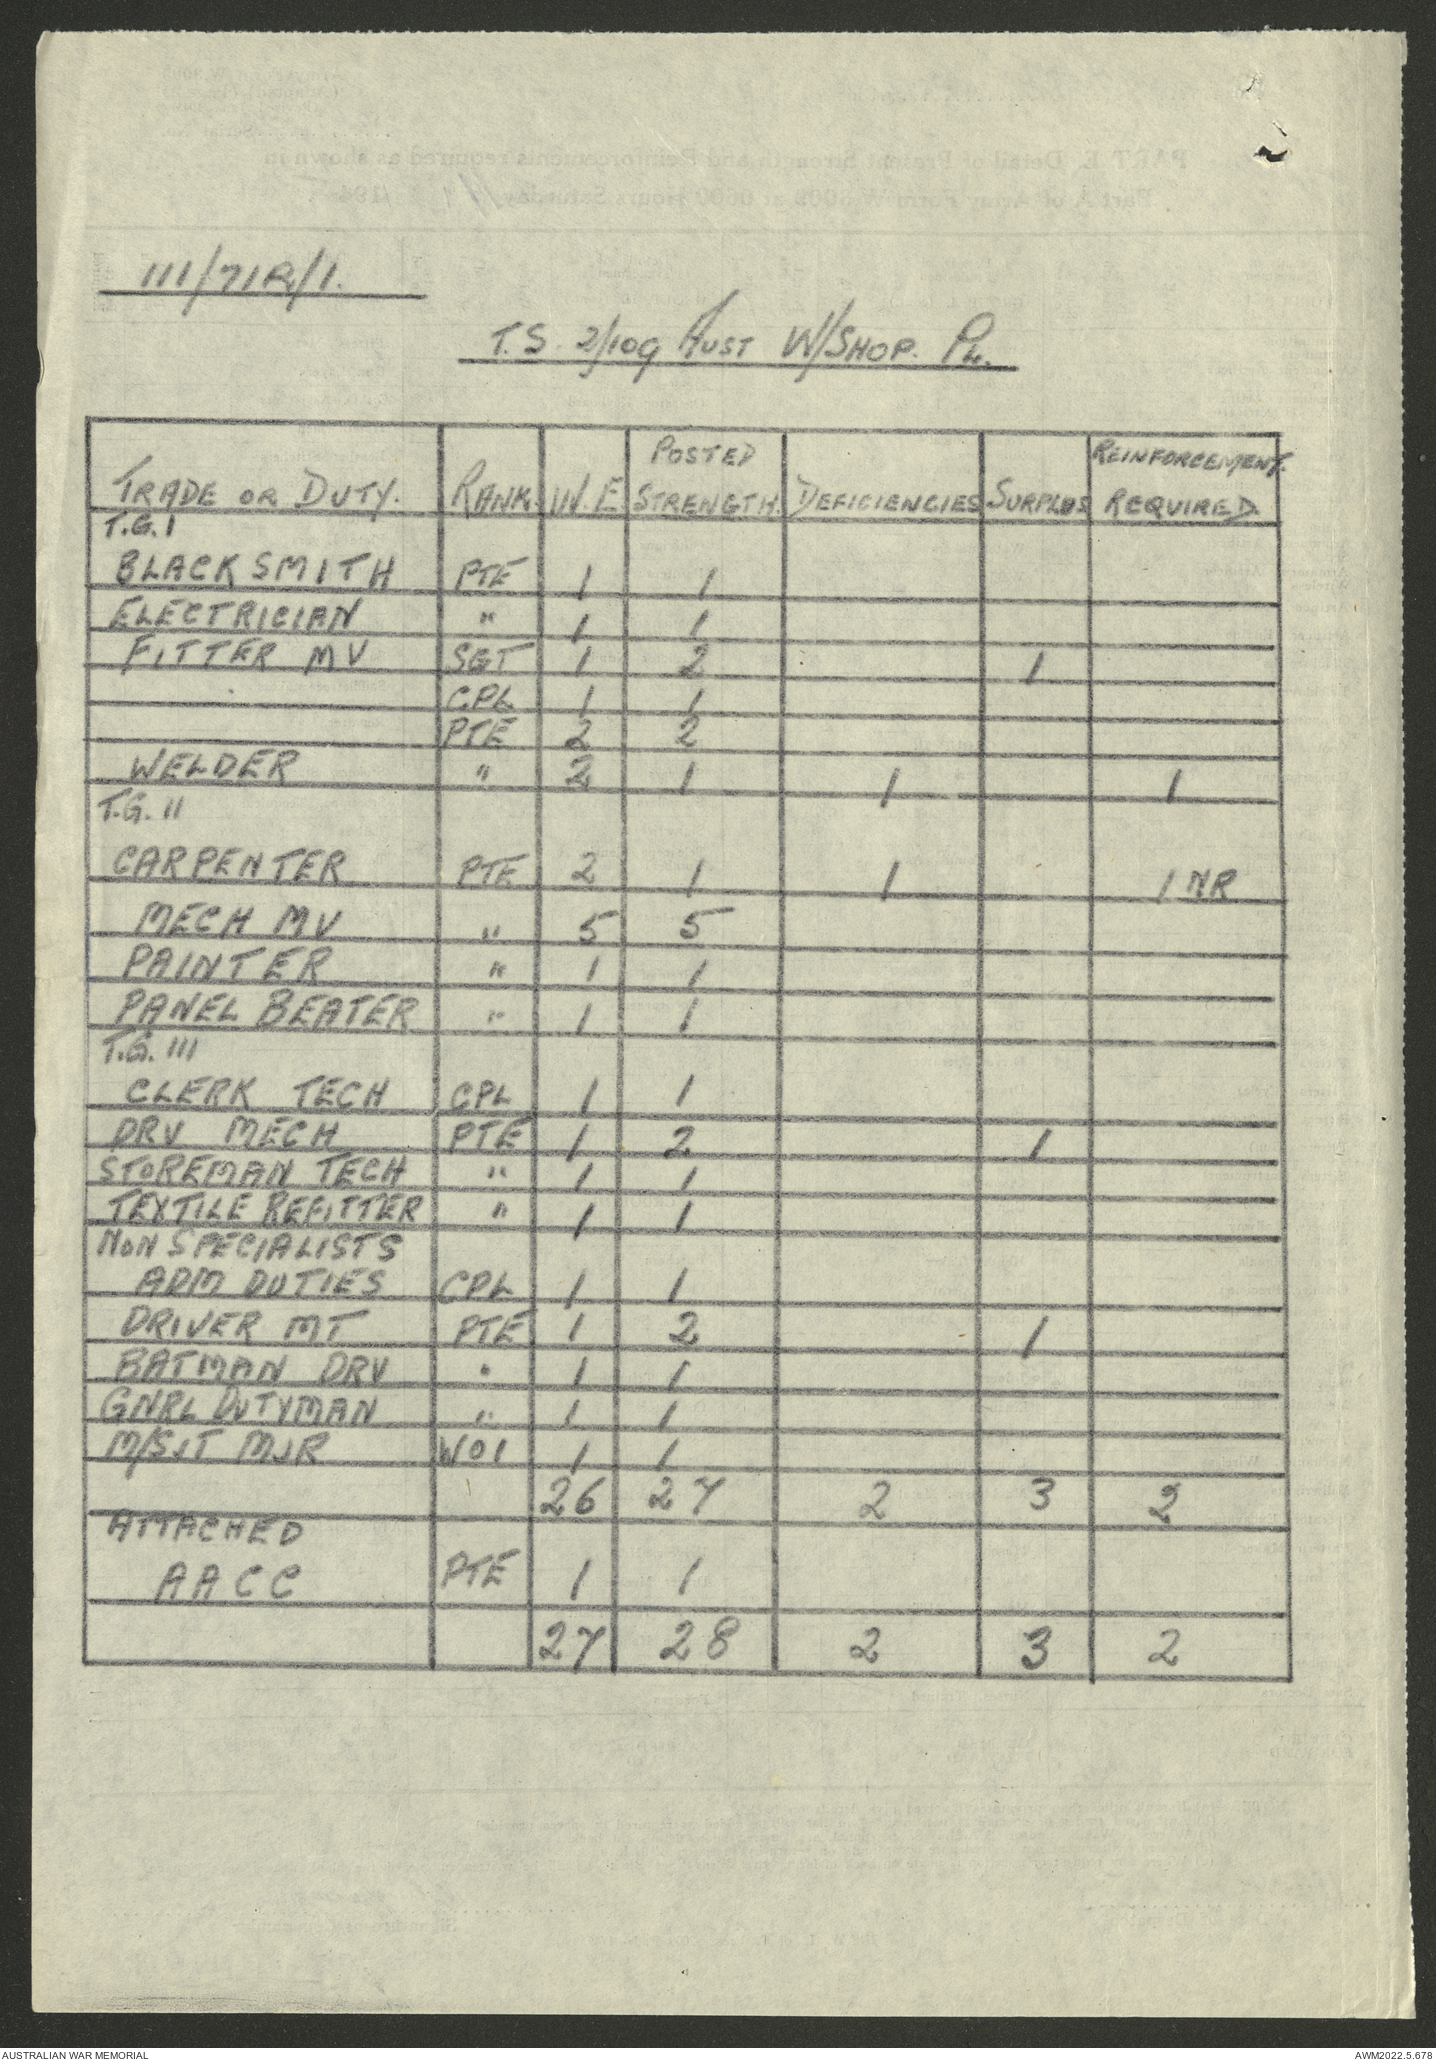 111/71R/1.
T.S. 2/109 AUST W/SHOP. PL.
TRADE OR DUTY. RANK. W.E POSTED STRENGTH. DEFICIENCIES SURPLUS REINFORCEMENT. REQUIRED.
T.G.I
BLACKSMITH PTE 1 1
ELECTRICIAN " 1 1
FITTER MV SGT 1 2 1
CPL 1 1
PTE 2 2
WELDER " 2 1 1 1
T.G. II
CARPENTER PTE 2 1 1 1 NR
MECH MV " 5 5
PAINTER " 1 1
PANEL BEATER " 1 1
T.G. III
CLERK TECH CPL 1 1
DRV MECH PTE 1 2 1
STOREMAN TECH " 1 1
TEXTILE REFITTER " 1 1
NON SPECIALISTS
ADM DUTIES CPL 1 1
DRIVER MT PTE 1 2 1
BATMAN DRV " 1 1
GNRL DUTYMAN " 1 1
M/SJT MJR WO1 1 1
26 27 2 3 2
ATTACHED
AACC PTE 1 1
27 28 2 3 2
AUSTRALIAN WAR MEMORIAL
AWM2022.5.678